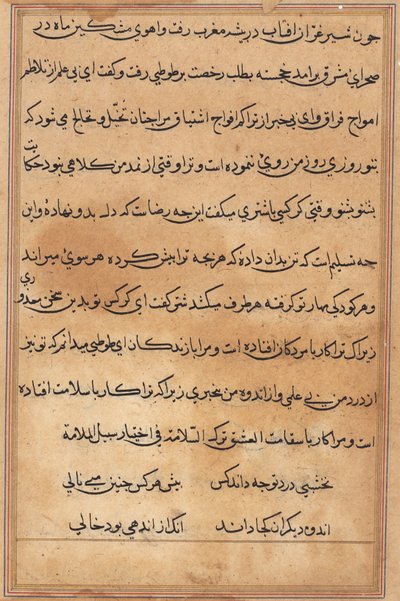 چون شیر غران افتاب در بیشه مغرب رفت و اهوی مشکین ماه در
صحرای مشرق برامد خجسته بطلب رخصت بر طوطی رفت و کفت ای بی علم از تلاطم
امواج فراق و ای بی خبر از تراکم افواج اشتیاق مرا چنان تخیل و تخالج می شود که
بتو روزی روز من روی ننموده است و ترا وقتی از من کلاهی بود حکایت
بشنو بشنو وقتی کرکسی باشتری میکفت این چه رضاست که دل بدو نهادهٔ و این
چه تسلیم است که تن بدان دادهٔ که هر بچه ترا پیش کرده هر سوی میراند
و هر کودکی مهار تو کرفته هر طرف میکشد شتر کفت ای کرکس تو بدین سخن معذوری
زیراک ترا کار با مردکان افتاده است و مرا با زندکان ای طوطی میدانم که تو نیز
از درد من بی علمی و از اندوه من بیخبری زیراکه ترا کار با سلامت افتاده
است و مرا کار با سقامت العشق ترک السلامة فی اختیار سبل الملامة
نخشبی درد تو چه داند کس پیش هر کس چنین همی نالی
اندوه دیکران کجا داند انک از اندهی بود خالی